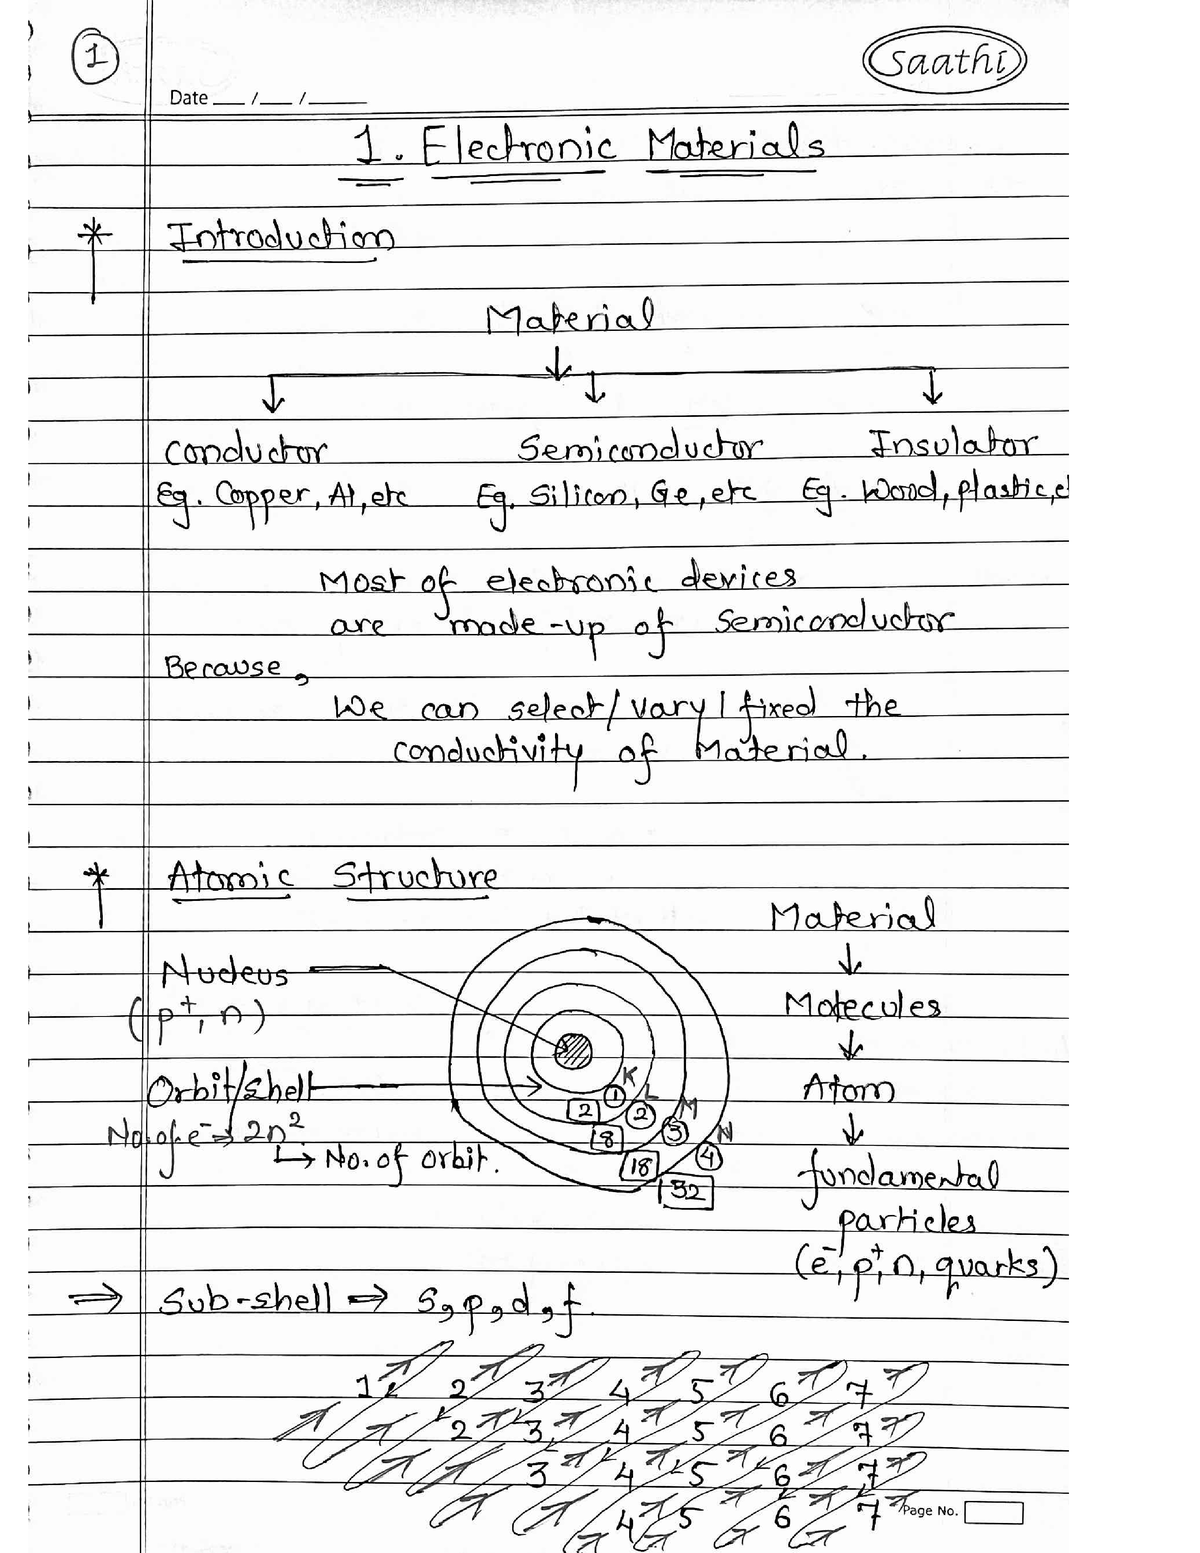 1
Saathi
Date __ / __ / ____
1. Electronic Materials
* Introduction
Material
Conductor Semiconductor Insulator
Eg. Copper, Al, etc Eg. Silicon, Ge, etc Eg. Wood, plastic, e
Most of electronic devices
are made-up of Semiconductor
Because,
We can select/vary/fixed the
conductivity of Material.
* Atomic Structure
Material
Nucleus
(p⁺, n)
Molecules
Orbit/shell
K L M N
1 2 3 4
2 8 18 32
Atom
No. of e⁻ → 2n²
↳ No. of orbit.
fundamental
particles
(e⁻, p⁺, n, quarks)
⇒ Sub-shell ⇒ s, p, d, f.
1 2 3 4 5 6 7
2 3 4 5 6 7
3 4 5 6 7
4 5 6 7
Page No.